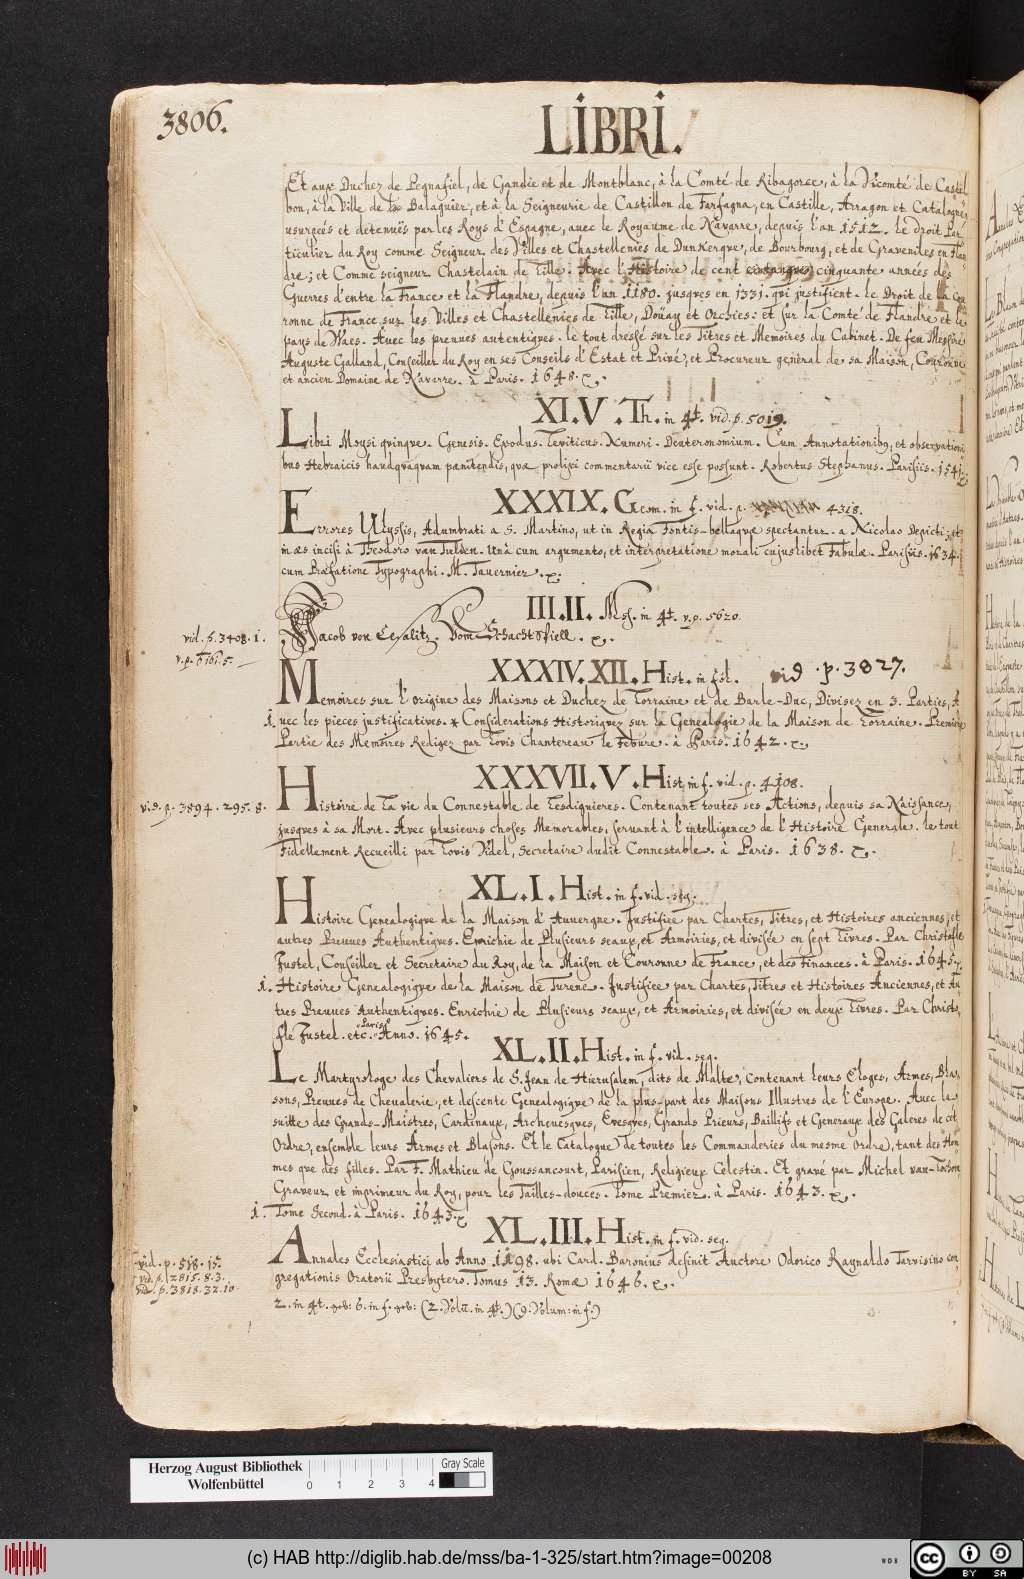 3806.
LIBRI.
Et aux Duchez de Pegnafiel, de Gandie et de Montblanc, à la Comté de Ribagorce, à la Vicomté de Castel
bon, à la Ville de Balaguier, et à la Seigneurie de Castillon de Farfagna, en Castille, Arragon et Catalogne,
usurpeés et detenuës par les Roys d'Espagne, avec le Royaume de Navarre, depuis l'an 1512. Le Droit Par
ticulier du Roy comme Seigneur des Villes et Chastellenies de Dunkerque, de Bourbourg, et de Gravenines en Flan
dre; et Comme seigneur Chastelain de Lille. Avec l'Histoire de cent cinquante années des
Guerres d'entre la France et la Flandre, depuis l'an 1180. jusques en 1331. qui justifient le Droit de la Cou
ronne de France sur les Villes et Chastellenies de Lille, Doüay et Orchies: et sur la Comté de Flandre et le
pays de Waes. Avec les preuves autentiques. le tout dressé sur les Titres et Memoires du Cabinet. De feu Messire
Auguste Galland, Conseiller du Roy en ses Conseils d'Estat et Privé, et Procureur general de sa Maison, Couronne
et ancien Domaine de Navarre. à Paris. 1648.
XI.V. Th. in 4t. vid. p. 5019.
Libri Moysi quinque. Genesis. Exodus. Leviticus. Numeri. Deuteronomium. Cum Annotationibq, et observationi
bus Hebraicis haudquaquam pœnitendis, quæ prolixi commentarii vice esse possunt. Robertus Stephanus. Parisiis. 1541.
XXXIX. Geom. in f. vid. p. 4318.
Errores Ulyssis, Adumbrati a S. Martino, ut in Regia Fontis-bellaquæ spectantur. a Nicolao Depicti; et
in æs incisi à Theodoro van Tulden. Unà cum argumento, et interpretatione morali cujuslibet Fabulæ. Parisiis. 1634.
cum Præfatione Typographi. M. Tavernier.
III.II. Mss. in 4t. v.p. 5620
vid. p. 3408. 1.
v.p. 6161. 5.
Jacob von Cesalitz. Vom Schachtspiell.
XXXIV.XII. Hist. in fol. vid. p. 3827.
Memoires sur l'origine des Maisons et Duchez de Lorraine et de Barle-Duc, Divisez en 3. Parties, A
1. vec les pieces justificatives. * Considerations Historiques sur la Genealogie de la Maison de Lorraine. Premiere
Partie des Memoires Redigez par Lovis Chantereau le Febure. à Paris. 1642.
XXXVII.V. Hist. in f. vid. p. 4108.
vid. p. 3894. 295. 8.
Histoire de la vie du Connestable de Lesdiguieres. Contenant toutes ses Actions, depuis sa Naissance,
jusques à sa Mort. Avec plusieurs choses Memorables, servant à l'intelligence de l'Histoire Generale. le tout
Fidellement Recueilli par Lovis Videl, Secretaire dudit Connestable. à Paris. 1638.
XL.I. Hist. in f. vid. seq.
Histoire Genealogique de la Maison d'Auvergne. Justifiée par Chartes, Titres, et Histoires anciennes, et
autres Preuves Authentiques. Enrichie de Plusieurs seaux, et Armoiries, et divisée en sept Livres. Par Christofle
Justel, Conseiller et Secretaire du Roy, de la Maison et Couronne de France, et des Finances. à Paris. 1645.
1. Histoire Genealogique de la Maison de Turene. Justifiée par Chartes, Titres et Histoires Anciennes, et Au
tres Preuves Authentiques. Enrichie de Plusieurs seaux, et Armoiries, et divisée en deux Livres. Par Christo,
fle Justel. etc. Paris. Anno. 1645.
XL.II. Hist. in f. vid. seq.
Le Martyrologe des Chevaliers de S. Jean de Hierusalem, dits de Malte, contenant leurs Eloges, Armes, Bla,
sons, Preuves de Chevalerie, et descente Genealogique de la plus-part des Maisons Illustres de l'Europe. Avec la
suitte des Grands-Maistres, Cardinaux, Archevesques, Evesques, Grands Prieurs, Baillifs et Generaux des Galeres de cet
Ordre, ensemble leurs Armes et Blasons. Et le Catalogue de toutes les Commanderies du mesme Ordre, tant des Hom
mes que des filles. Par F. Mathieu de Goussancourt, Parisien, Religieux Celestin. Et gravé par Michel van-Lochon
Graveur et imprimeur du Roy, pour les Tailles-douces. Tome Premier. à Paris. 1643.
1. Tome Second. à Paris. 1643.
XL.III. Hist. in f. vid. seq.
vid. p. 518. 15.
vid. p. 2815. 8. 3.
vid. p. 3818. 32. 10
Annales Ecclesiastici ab Anno 1198. ubi Card. Baronius desinit Auctore Odorico Raynaldo Tarvisino con
gregationis Oratorii Presbytero. Tomus 13. Romæ 1646.
2. in 4t. geb: 6. in f. geb: (2. Volu. in 4t.) (9. Volum: in f.)
Herzog August Bibliothek
Wolfenbüttel
0 1 2 3 4
Gray Scale
(c) HAB http://diglib.hab.de/mss/ba-1-325/start.htm?image=00208
WDB
cc BY SA